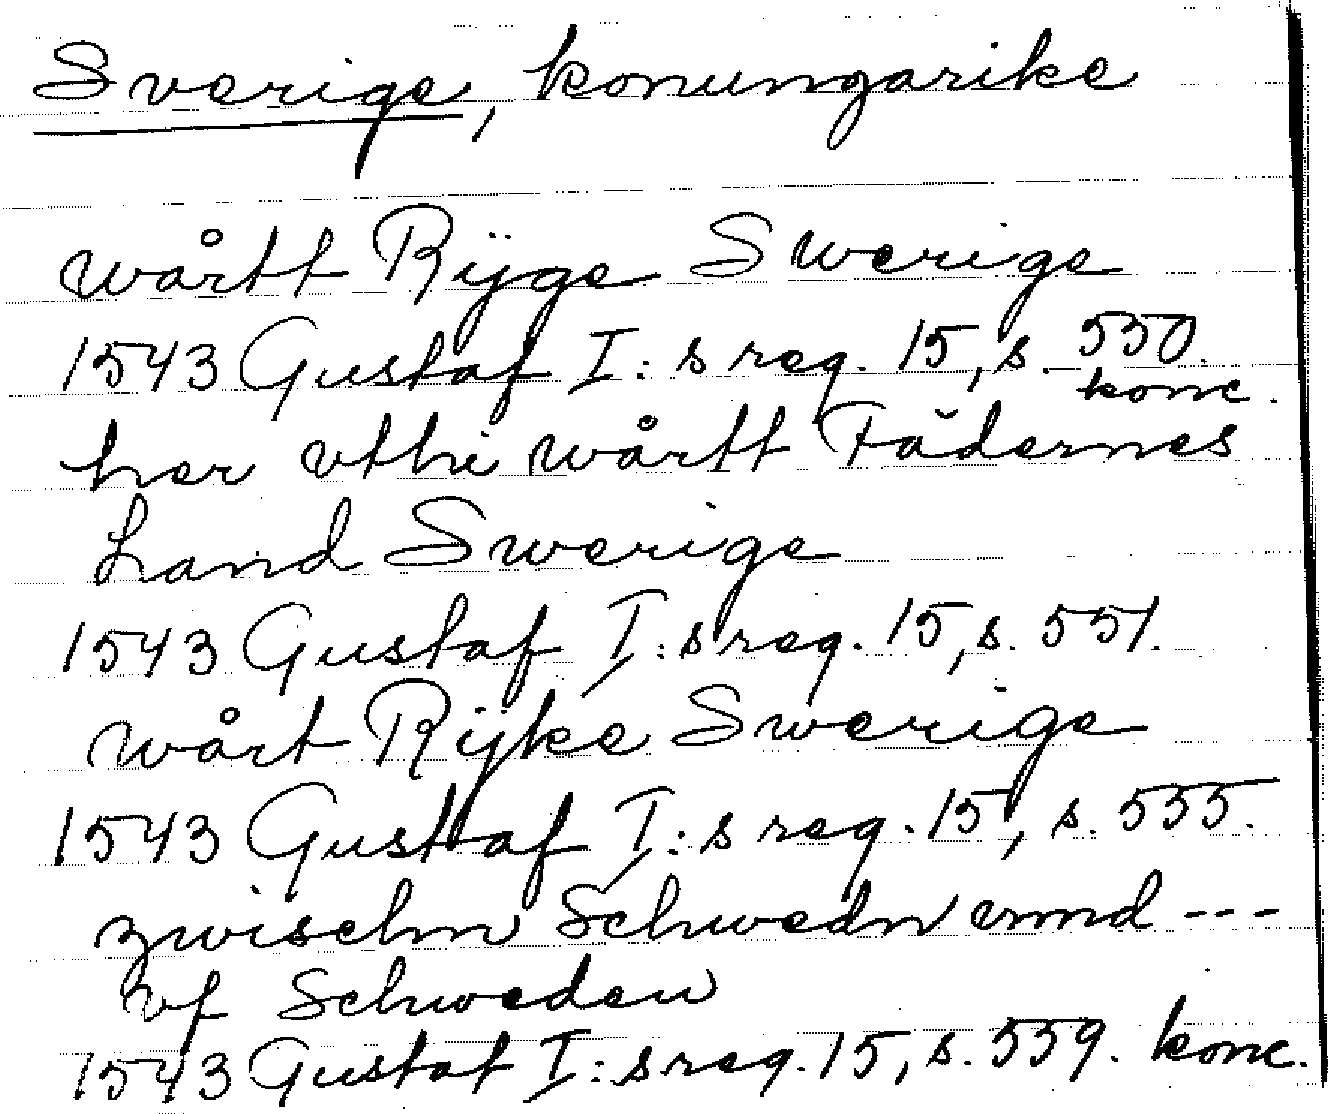 Sverige, konungarike
wårtt Rijge Swerige
1543 Gustaf I:s reg. 15, s. 550.
konc.
her vthi wårtt Fädernes
Land Swerige
1543 Gustaf I:s reg. 15, s. 551.
wårt Rijke Swerige
1543 Gustaf I:s reg. 15, s. 555.
zwischn Schwedn vnnd ---
vf Schweden
1543 Gustaf I:s reg. 15, s. 559. konc.